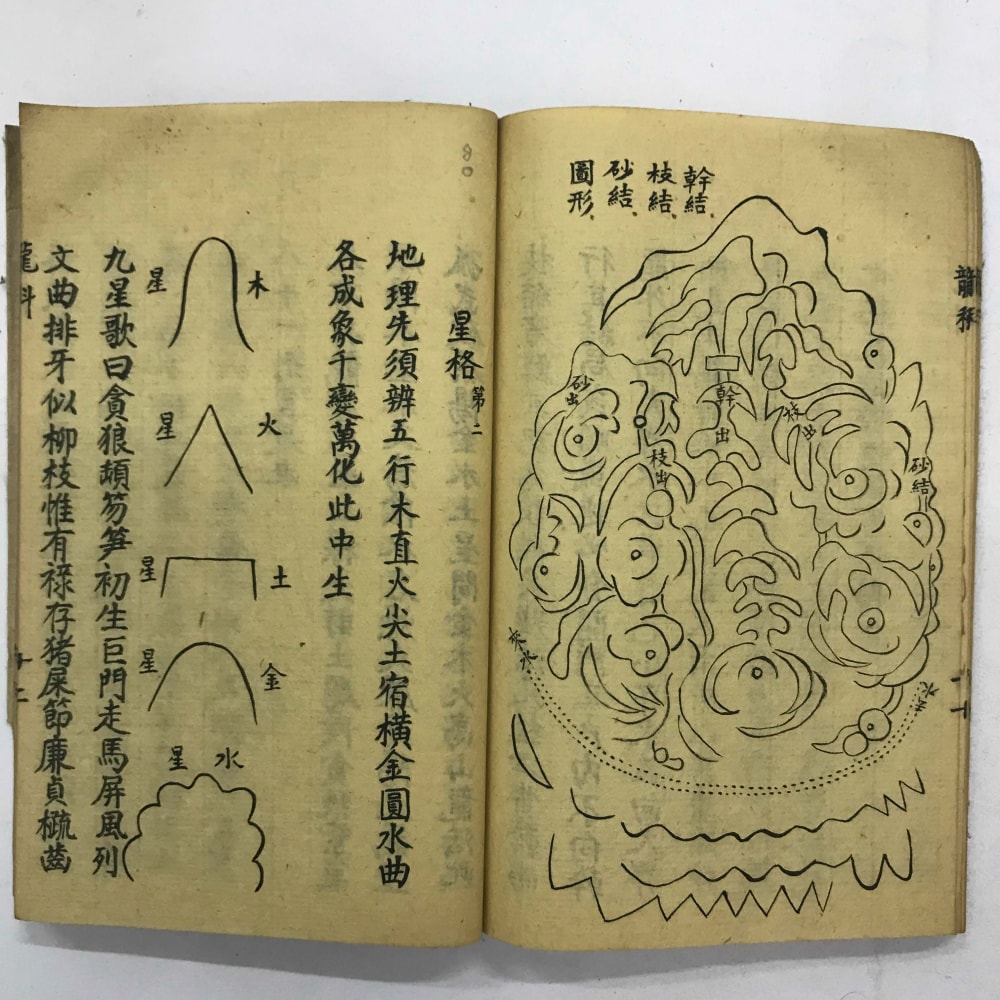 幹結、
枝結、
砂結、
圖形、
砂出
幹出
枝出
枝出
砂結
來水
去水
龍
星格第二
地理先須辨五行木直火尖土宿橫金圓水曲
各成象千變萬化此中生
木星
火星
土星
金星
水星
九星歌曰貪狼頓笏笋初生巨門走馬屏風列
文曲排牙似柳枝惟有祿存猪屎節廉貞梳齒